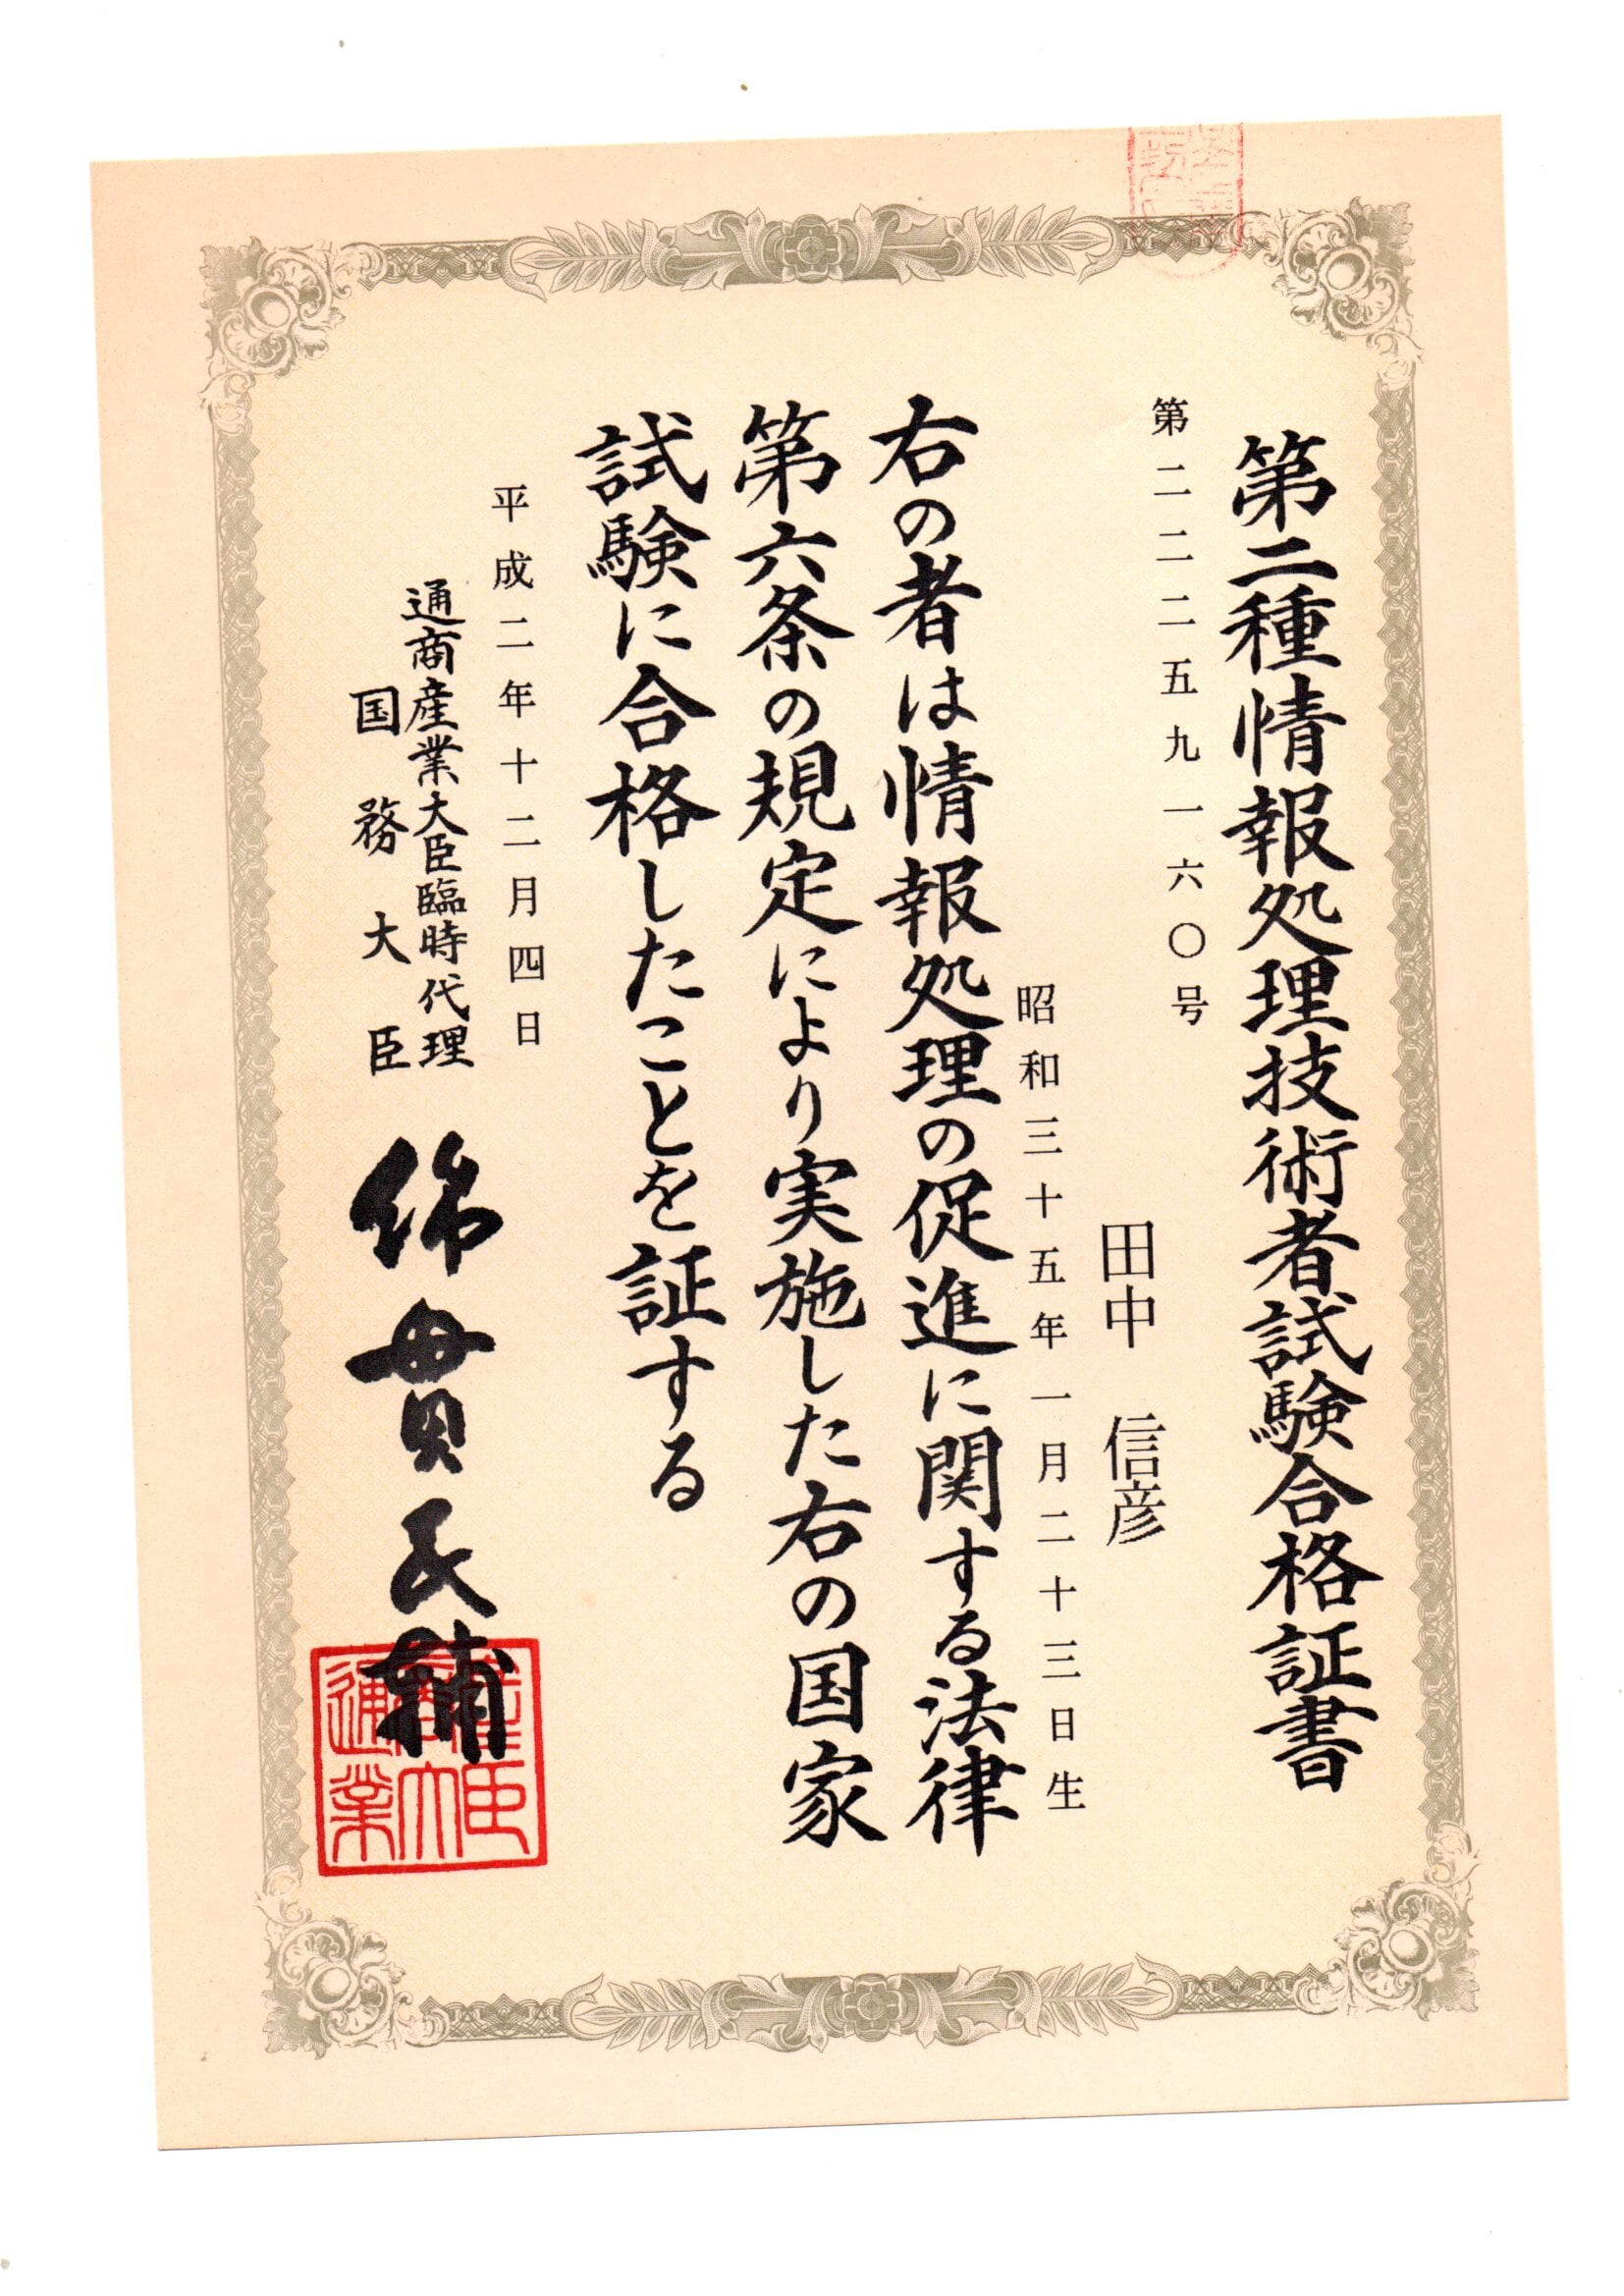 第二種情報処理技術者試験合格証書
第二二二五九一六〇号
田中 信彦
昭和三十五年一月二十三日生
右の者は情報処理の促進に関する法律
第六条の規定により実施した右の国家
試験に合格したことを証する
平成二年十二月四日
通商産業大臣臨時代理
国務大臣
綿貫民輔
通商産業大臣